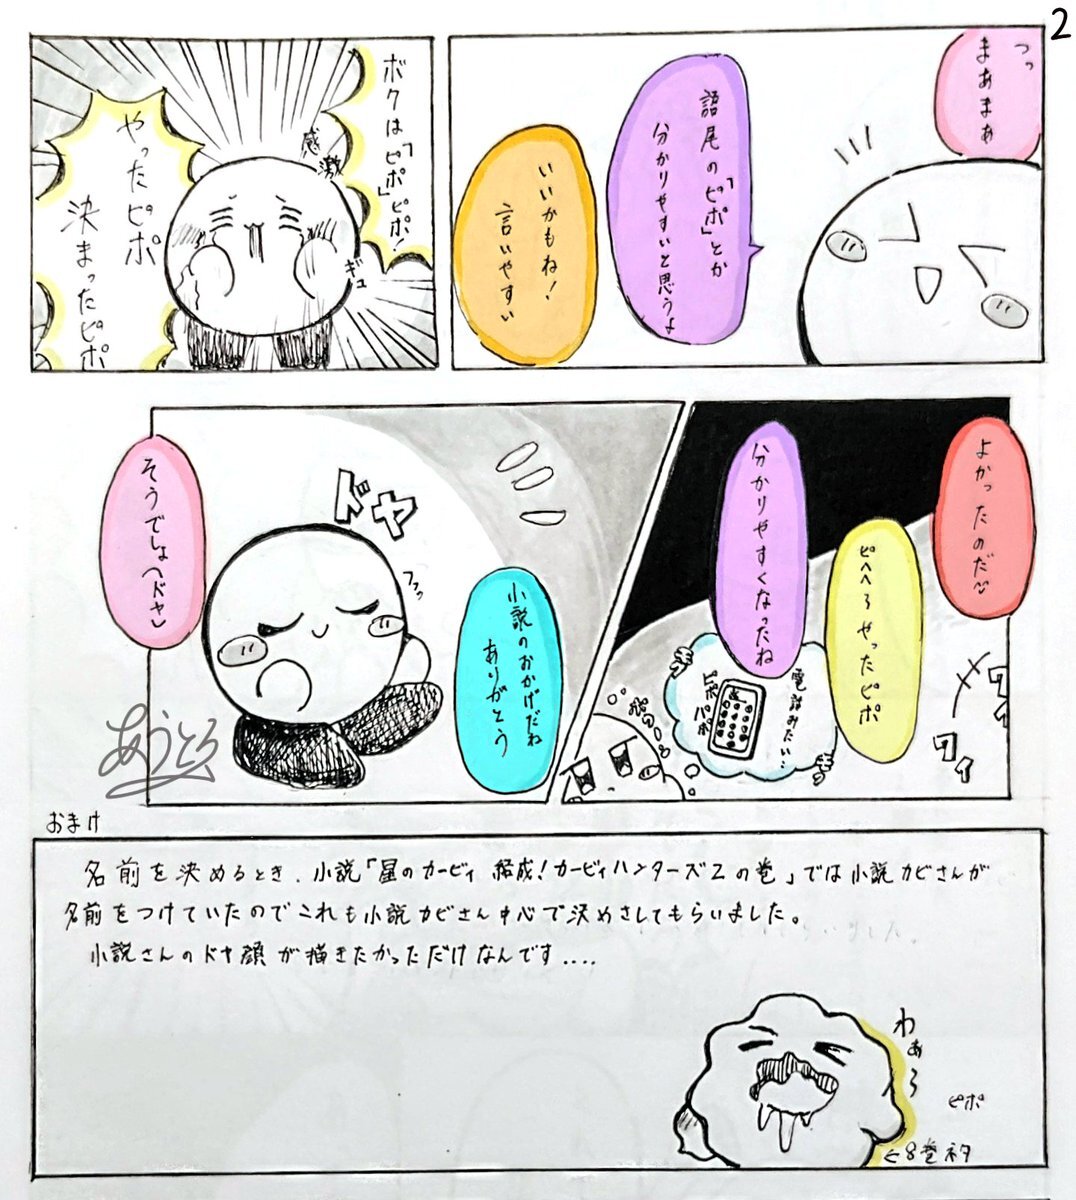 2
っっ
まあまぁ
語尾の「ピポ」とか
分かりやすいと思うよ
いいかもね！
言いやすい
ボクは「ピポ」ピポ！
感激
ギュ
やったピポ
決まったピポ
よかったのだ
ピヘヘ〜やったピポ
分かりやすくなったね
電話みたい…
ピポパポ
ワイ
ワイ
小説のおかげだね
ありがとう
ドヤ
フフッ
そうでしょへドヤ
あうとろ
おまけ
名前を決めるとき、小説「星のカービィ 結成！カービィハンターズZの巻」では小説カビさんが
名前をつけていたのでこれも小説カビさん中心で決めさしてもらいました。
小説さんのドヤ顔が描きたかっただけなんです....
わぁ〜
ピポ
←8巻ネタ